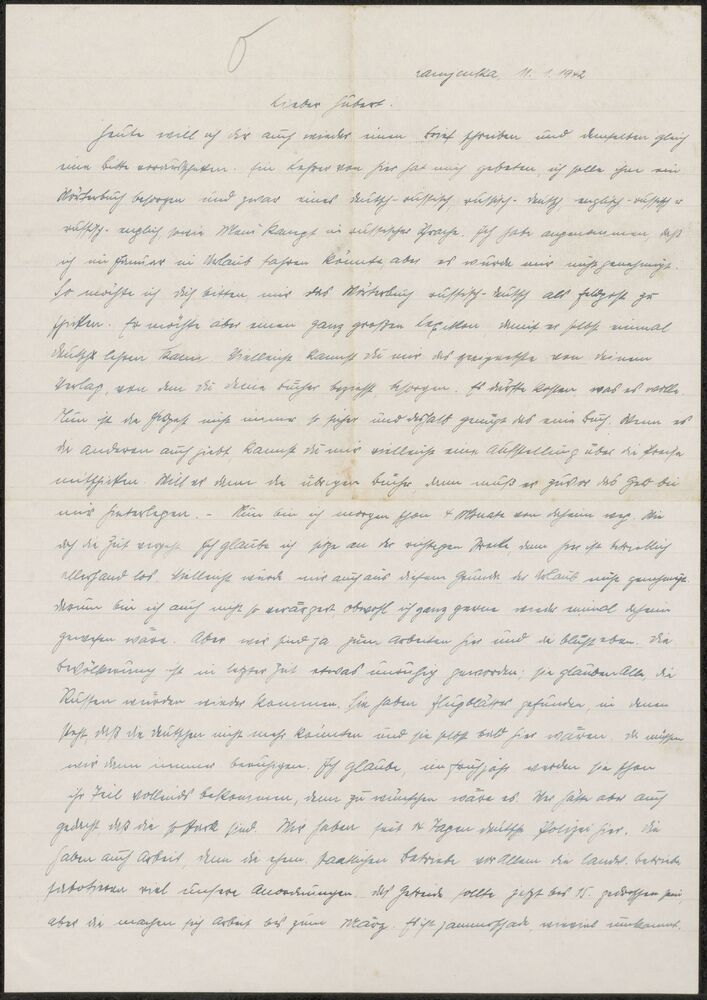 Zamjenka, 11. 1. 1942
Lieber Hubert.
Heute will ich dir auch wieder einen Brief schreiben und demselben gleich
eine Bitte vorausschicken. Ein Lehrer von hier hat mich gebeten, ich solle ihm ein
Wörterbuch besorgen und zwar eines deutsch-russisch, russisch-deutsch englisch-russisch u
russisch-englisch, sowie Mein Kampf in russischer Sprache. Ich habe angenommen, daß
ich im Januar in Urlaub fahren könnte aber es wurde mir nicht genehmigt.
So möchte ich dich bitten, mir das Wörterbuch russisch-deutsch als Feldpost zu
schicken. Er möchte aber einen ganz großen Lexikon damit er selbst einmal
deutsch lehren kann. Vielleicht kannst du mir das geeignetste von deinem
Verlag, von dem du deine Bücher beziehst, besorgen. Es dürfte kosten was es wolle.
Nun ist die Feldpost nicht immer so sicher und deshalb genügt das eine Buch. Wenn es
die anderen auch giebt kannst du mir vielleicht eine Aufstellung über die Preise
mitschicken. Will er dann die übrigen Bücher, dann muß er zuvor das Geld bei
mir hinterlegen. - Nun bin ich morgen schon 4 Monate von daheim weg. Wie
doch die Zeit vergeht. Ich glaube ich sitze an der richtigen Stelle, denn hier ist
allerhand los. Vielleicht wurde mir auch aus diesem Grunde der Urlaub nicht genehmigt.
Darum bin ich auch nicht so verärgert obwohl ich ganz gerne wieder einmal daheim
gewesen wäre. Aber wir sind ja zum arbeiten hier und da eben. Die
Bevölkerung ist in letzter Zeit etwas unruhig geworden; sie glauben Alle, die
Russen würden wieder kommen. Sie haben Flugblätter gefunden, in denen
steht, daß die Deutschen nicht mehr könnten und sie selbst bald hier wären. Da müssen
wir dann immer beruhigen. Ich glaube, im Frühjahr werden sie schon
ihr Teil vollends bekommen, denn zu wünschen wäre es. Wer hätte aber auch
gedacht daß die so stark sind. Wir haben seit 14 Tagen deutsche Polizei hier. Die
haben auch Arbeit, denn die ehem. staatlichen Betriebe vor Allem die landw. Betriebe
sabotieren viel unsere Anordnungen. Das Getreide sollte jetzt bis 15. gedroschen sein,
aber die machen sich Arbeit bis zum März. Es ist jammerschade, wieviel umkommt.